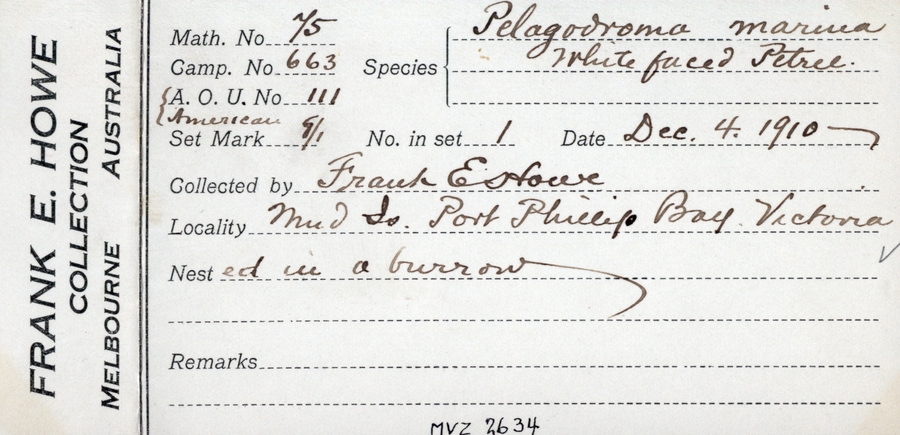 FRANK E. HOWE
COLLECTION
MELBOURNE AUSTRALIA
Math. No 75
Camp. No 663
A. O. U. No 111
American
Species Pelagodroma marina
White faced Petrel.
Set Mark 9/1 No. in set 1 Date Dec. 4. 1910
Collected by Frank E Howe
Locality Mud Is. Port Phillip Bay. Victoria
Nest ed in a burrow
Remarks
MVZ 2634